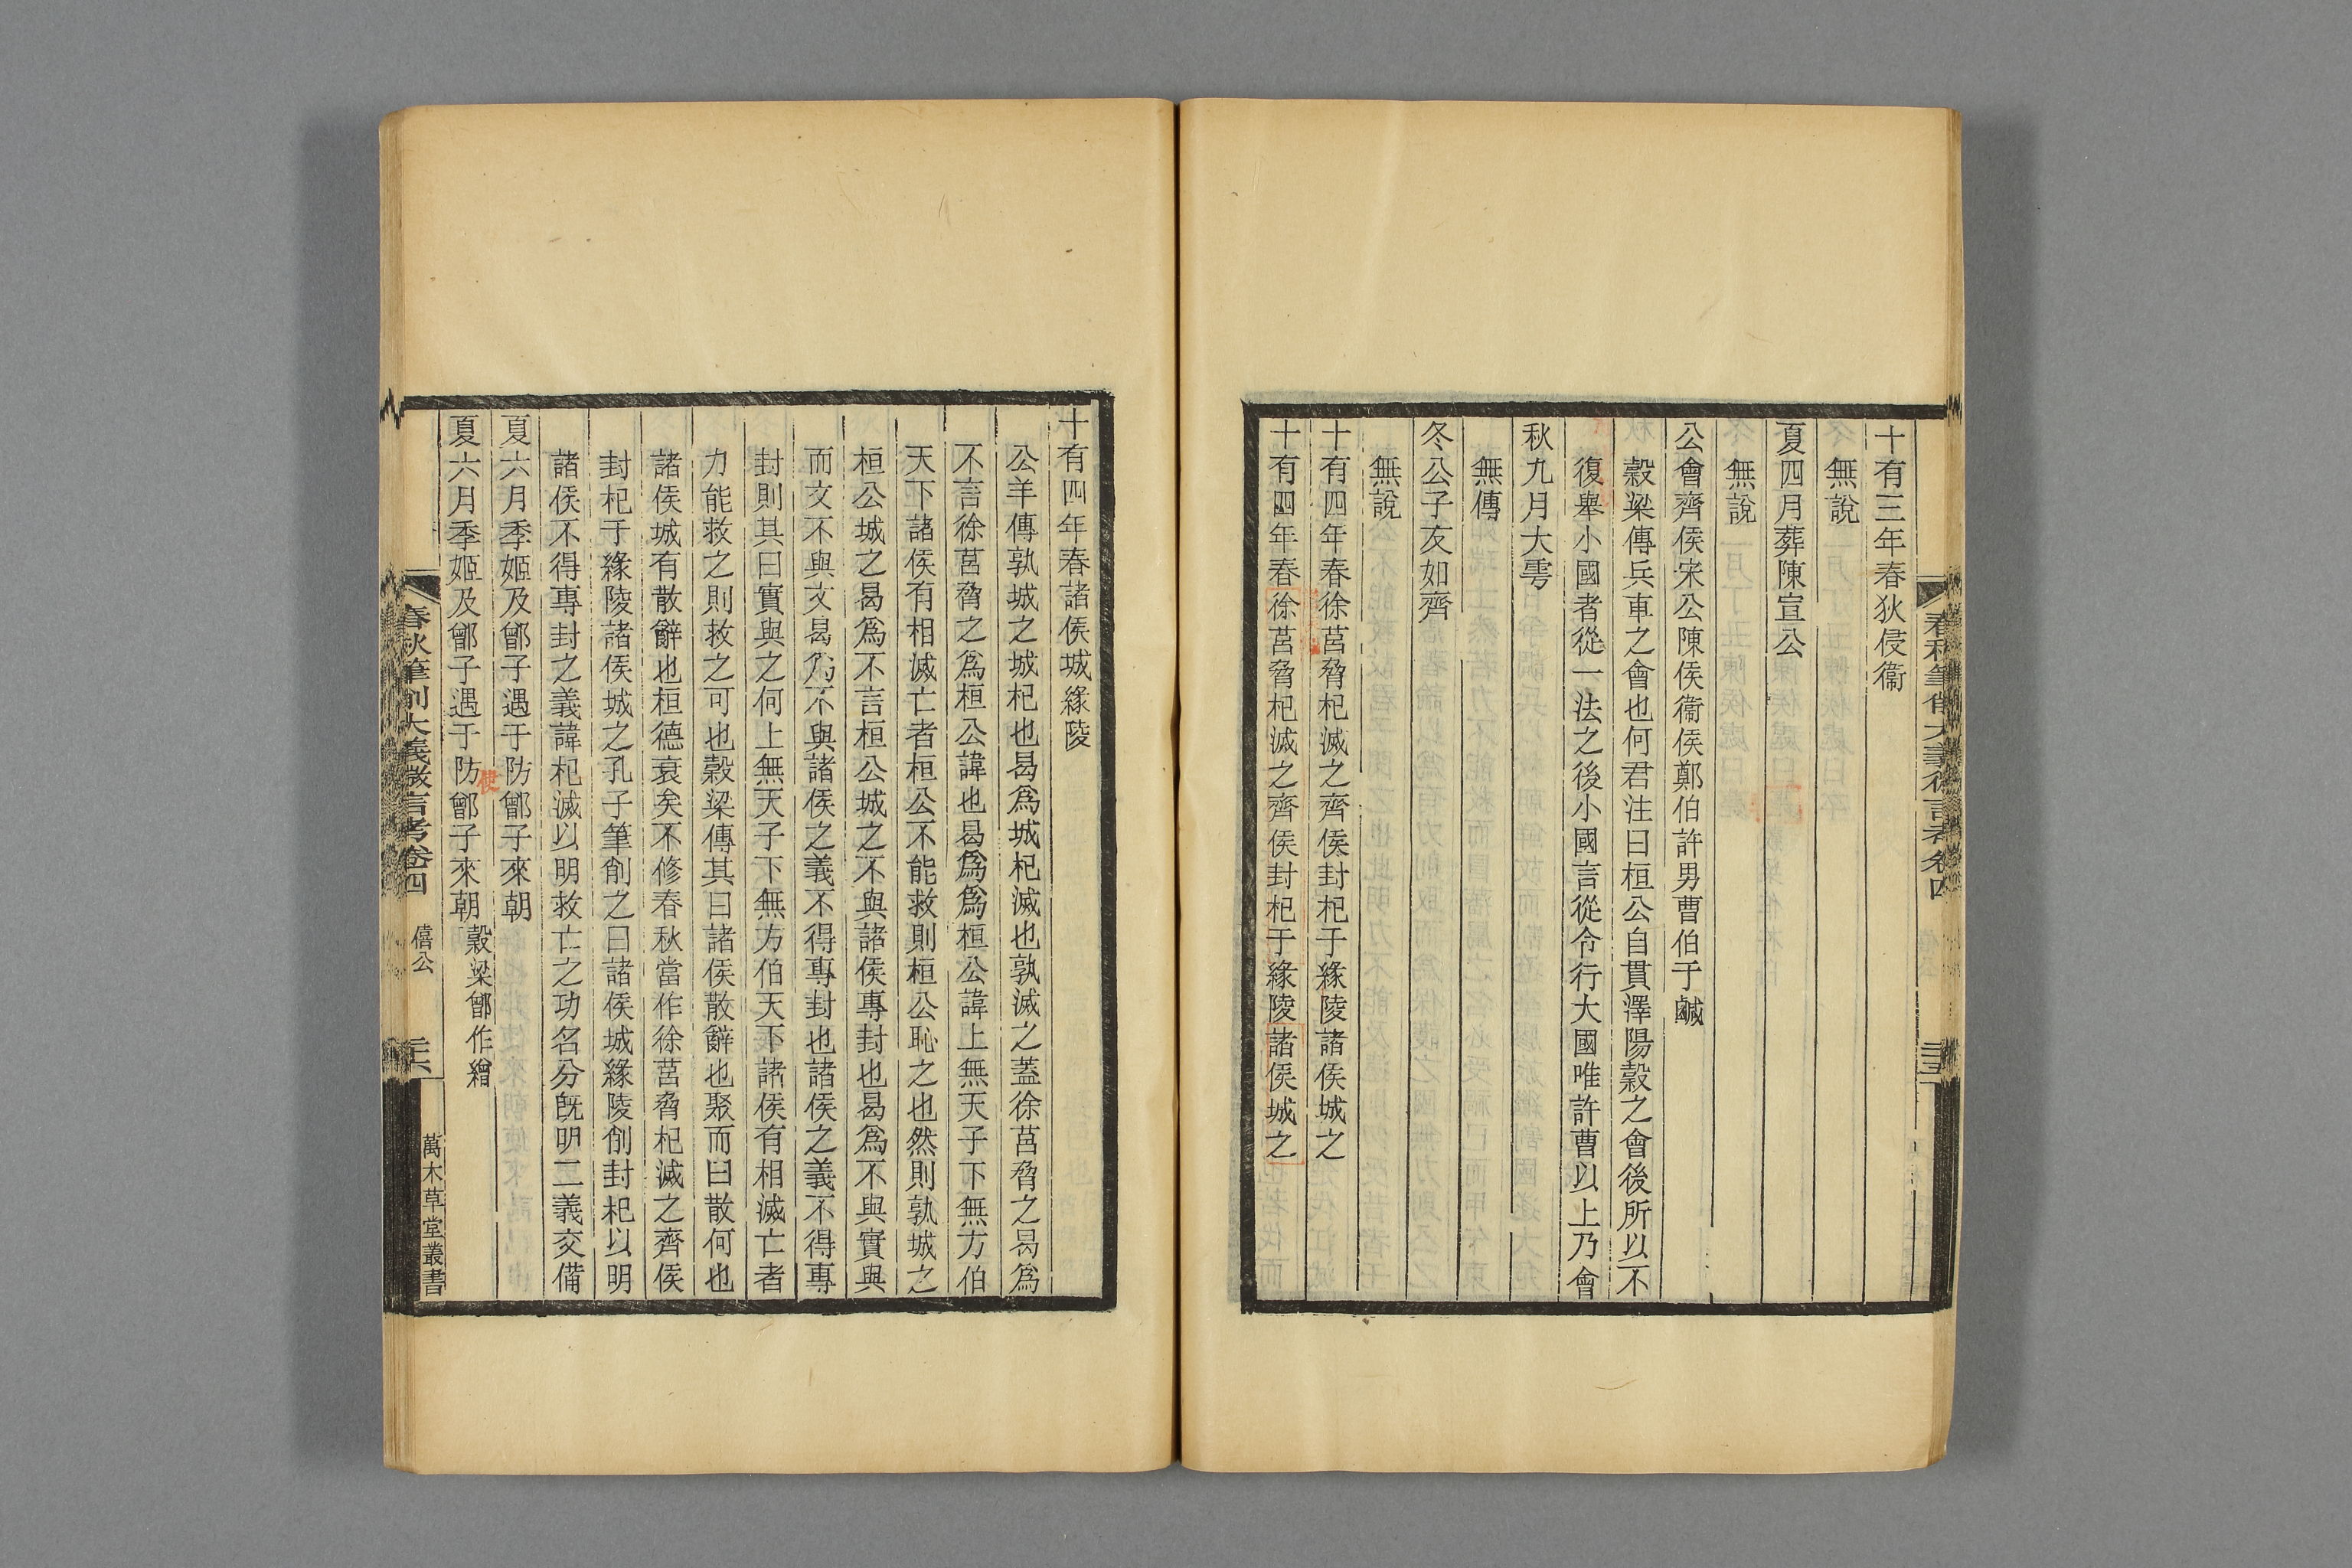 十有三年春狄侵衞
無說
夏四月葬陳宣公
無說
公會齊侯宋公陳侯衞侯鄭伯許男曹伯于鹹
穀梁傳兵車之會也何君注曰桓公自貫澤陽穀之會後所以不
復舉小國者從一法之後小國言從令行大國唯許曹以上乃會
秋九月大雩
無傳
冬公子友如齊
無說
十有四年春徐莒脅杞滅之齊侯封杞于緣陵諸侯城之
十有四年春徐莒脅杞滅之齊侯封杞于緣陵諸侯城之
十有四年春諸侯城緣陵
公羊傳孰城之城杞也曷爲城杞滅也孰滅之蓋徐莒脅之曷爲
不言徐莒脅之爲桓公諱也曷爲爲桓公諱上無天子下無方伯
天下諸侯有相滅亡者桓公不能救則桓公恥之也然則孰城之
桓公城之曷爲不言桓公城之不與諸侯專封也曷爲不與實與
而文不與文曷爲不與諸侯之義不得專封也諸侯之義不得專
封則其曰實與之何上無天子下無方伯天下諸侯有相滅亡者
力能救之則救之可也穀梁傳其曰諸侯散辭也聚而曰散何也
諸侯城有散辭也桓德衰矣不修春秋當作徐莒脅杞滅之齊侯
封杞于緣陵諸侯城之孔子筆削之曰諸侯城緣陵削封杞以明
諸侯不得專封之義諱杞滅以明救亡之功名分既明二義交備
夏六月季姬及鄫子遇于防鄫子來朝
使
夏六月季姬及鄫子遇于防鄫子來朝 穀梁鄫作繒
春秋筆削大義微言考卷四 僖公 三十六 萬木草堂叢書